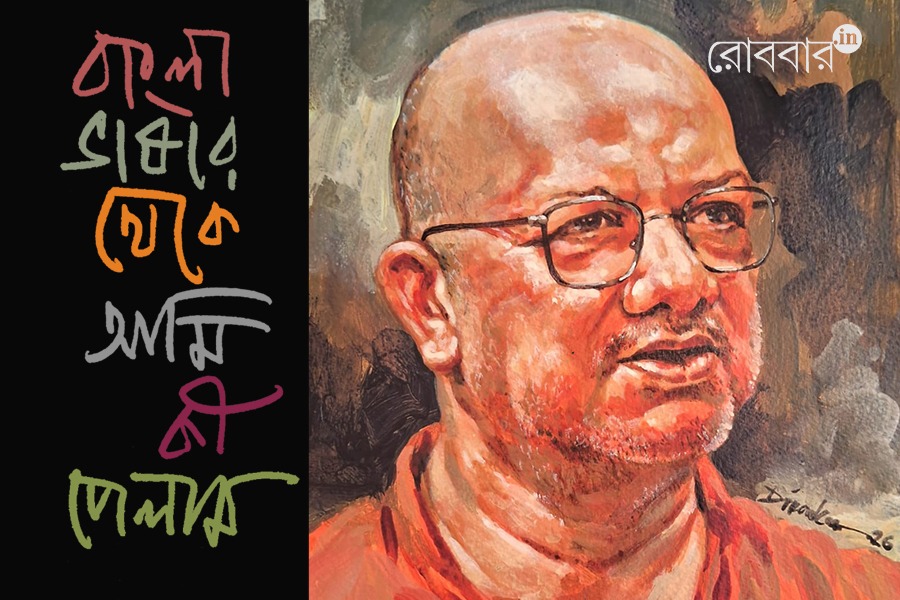 বাংলা
ভাষার
থেকে
আমি
কী
পেলাম
রোববার in
26